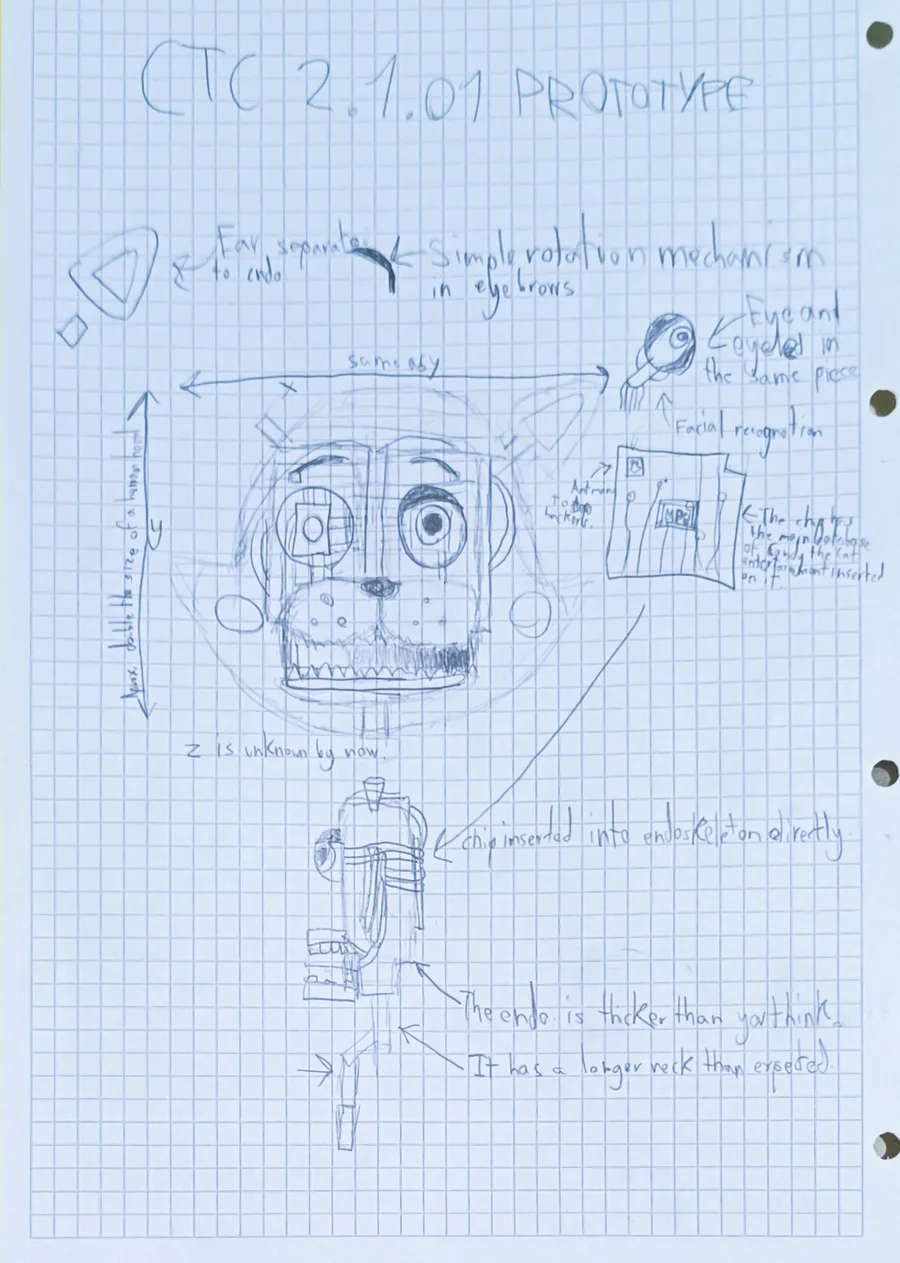 CTC 2.1.01 PROTOTYPE
Ear separate
to endo
Simple rotation mechanism
in eyebrows
Eye and
eyeled in
the same piece
same as y
x
Facial recognotion
Aprox. double the size of a human head
y
The chip has
the main database
of Candy the Cat
entertainment inserted
on it
z is unknown by now.
chip inserted into endoskeleton directly.
The endo is thicker than you think.
It has a longer neck than expected.